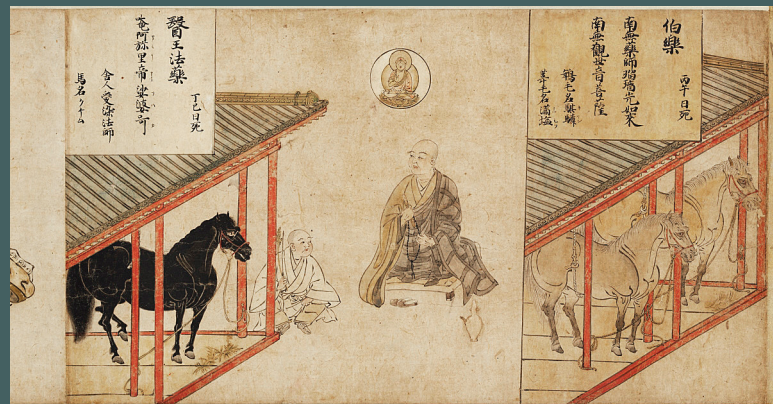 伯樂
丙午日死
南無藥師瑠璃光如來
南無觀世音菩薩
毛名騏驎
葦毛名滿塩
醫王法藥
丁巳日死
奄阿弥里帝娑婆訶
舎人愛染法師
馬名